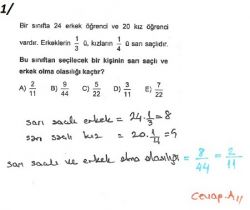 1/
Bir sınıfta 24 erkek öğrenci ve 20 kız öğrenci
vardır. Erkeklerin 1/3 ü, kızların 1/4 ü sarı saçlıdır.
Bu sınıftan seçilecek bir kişinin sarı saçlı ve
erkek olma olasılığı kaçtır?
A) 2/11 B) 9/44 C) 5/22 D) 3/11 E) 7/22
sarı saçlı erkek = 24.1/3 = 8
sarı saçlı kız = 20.1/4 = 5
sarı saçlı ve erkek olma olasılığı = 8/44 = 2/11
Cevap A